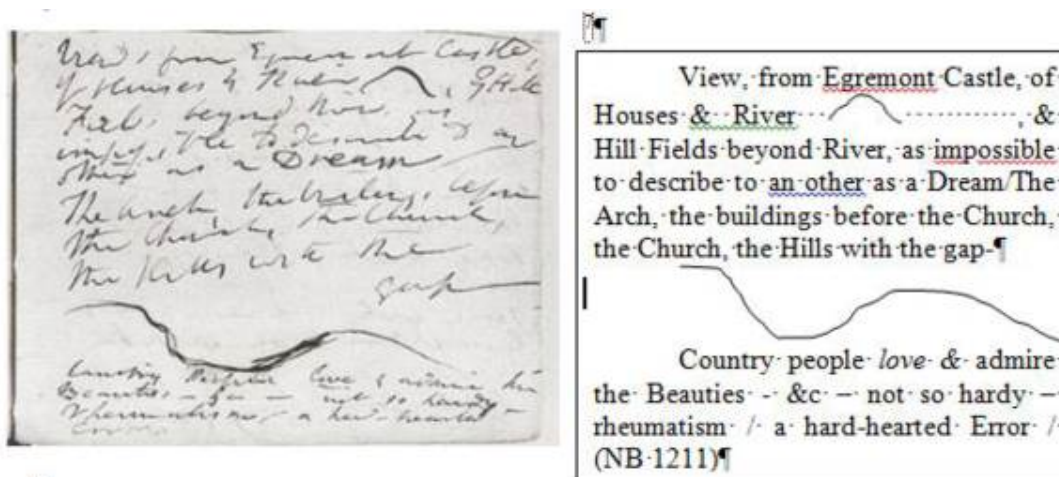 View, from Egremont Castle,
of Houses & River , & Hill
Fields beyond River, as
impossible to describe to an
other as a Dream
The Arch, the buildings, before
the Church, the Church,
the Hills with the
gap
Country People love & admire
the Beauties - &c - not so hardy
rheumatism / a hard-hearted
Error
¶
View, from Egremont Castle, of
Houses & River , &
Hill Fields beyond River, as impossible
to describe to an other as a Dream/The
Arch, the buildings before the Church,
the Church, the Hills with the gap-¶
Country people love & admire
the Beauties - &c – not so hardy –
rheumatism / a hard-hearted Error /
(NB 1211)¶